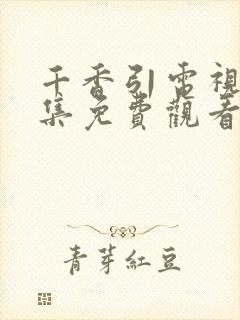 千香引電視
集免費觀看
青芽紅豆